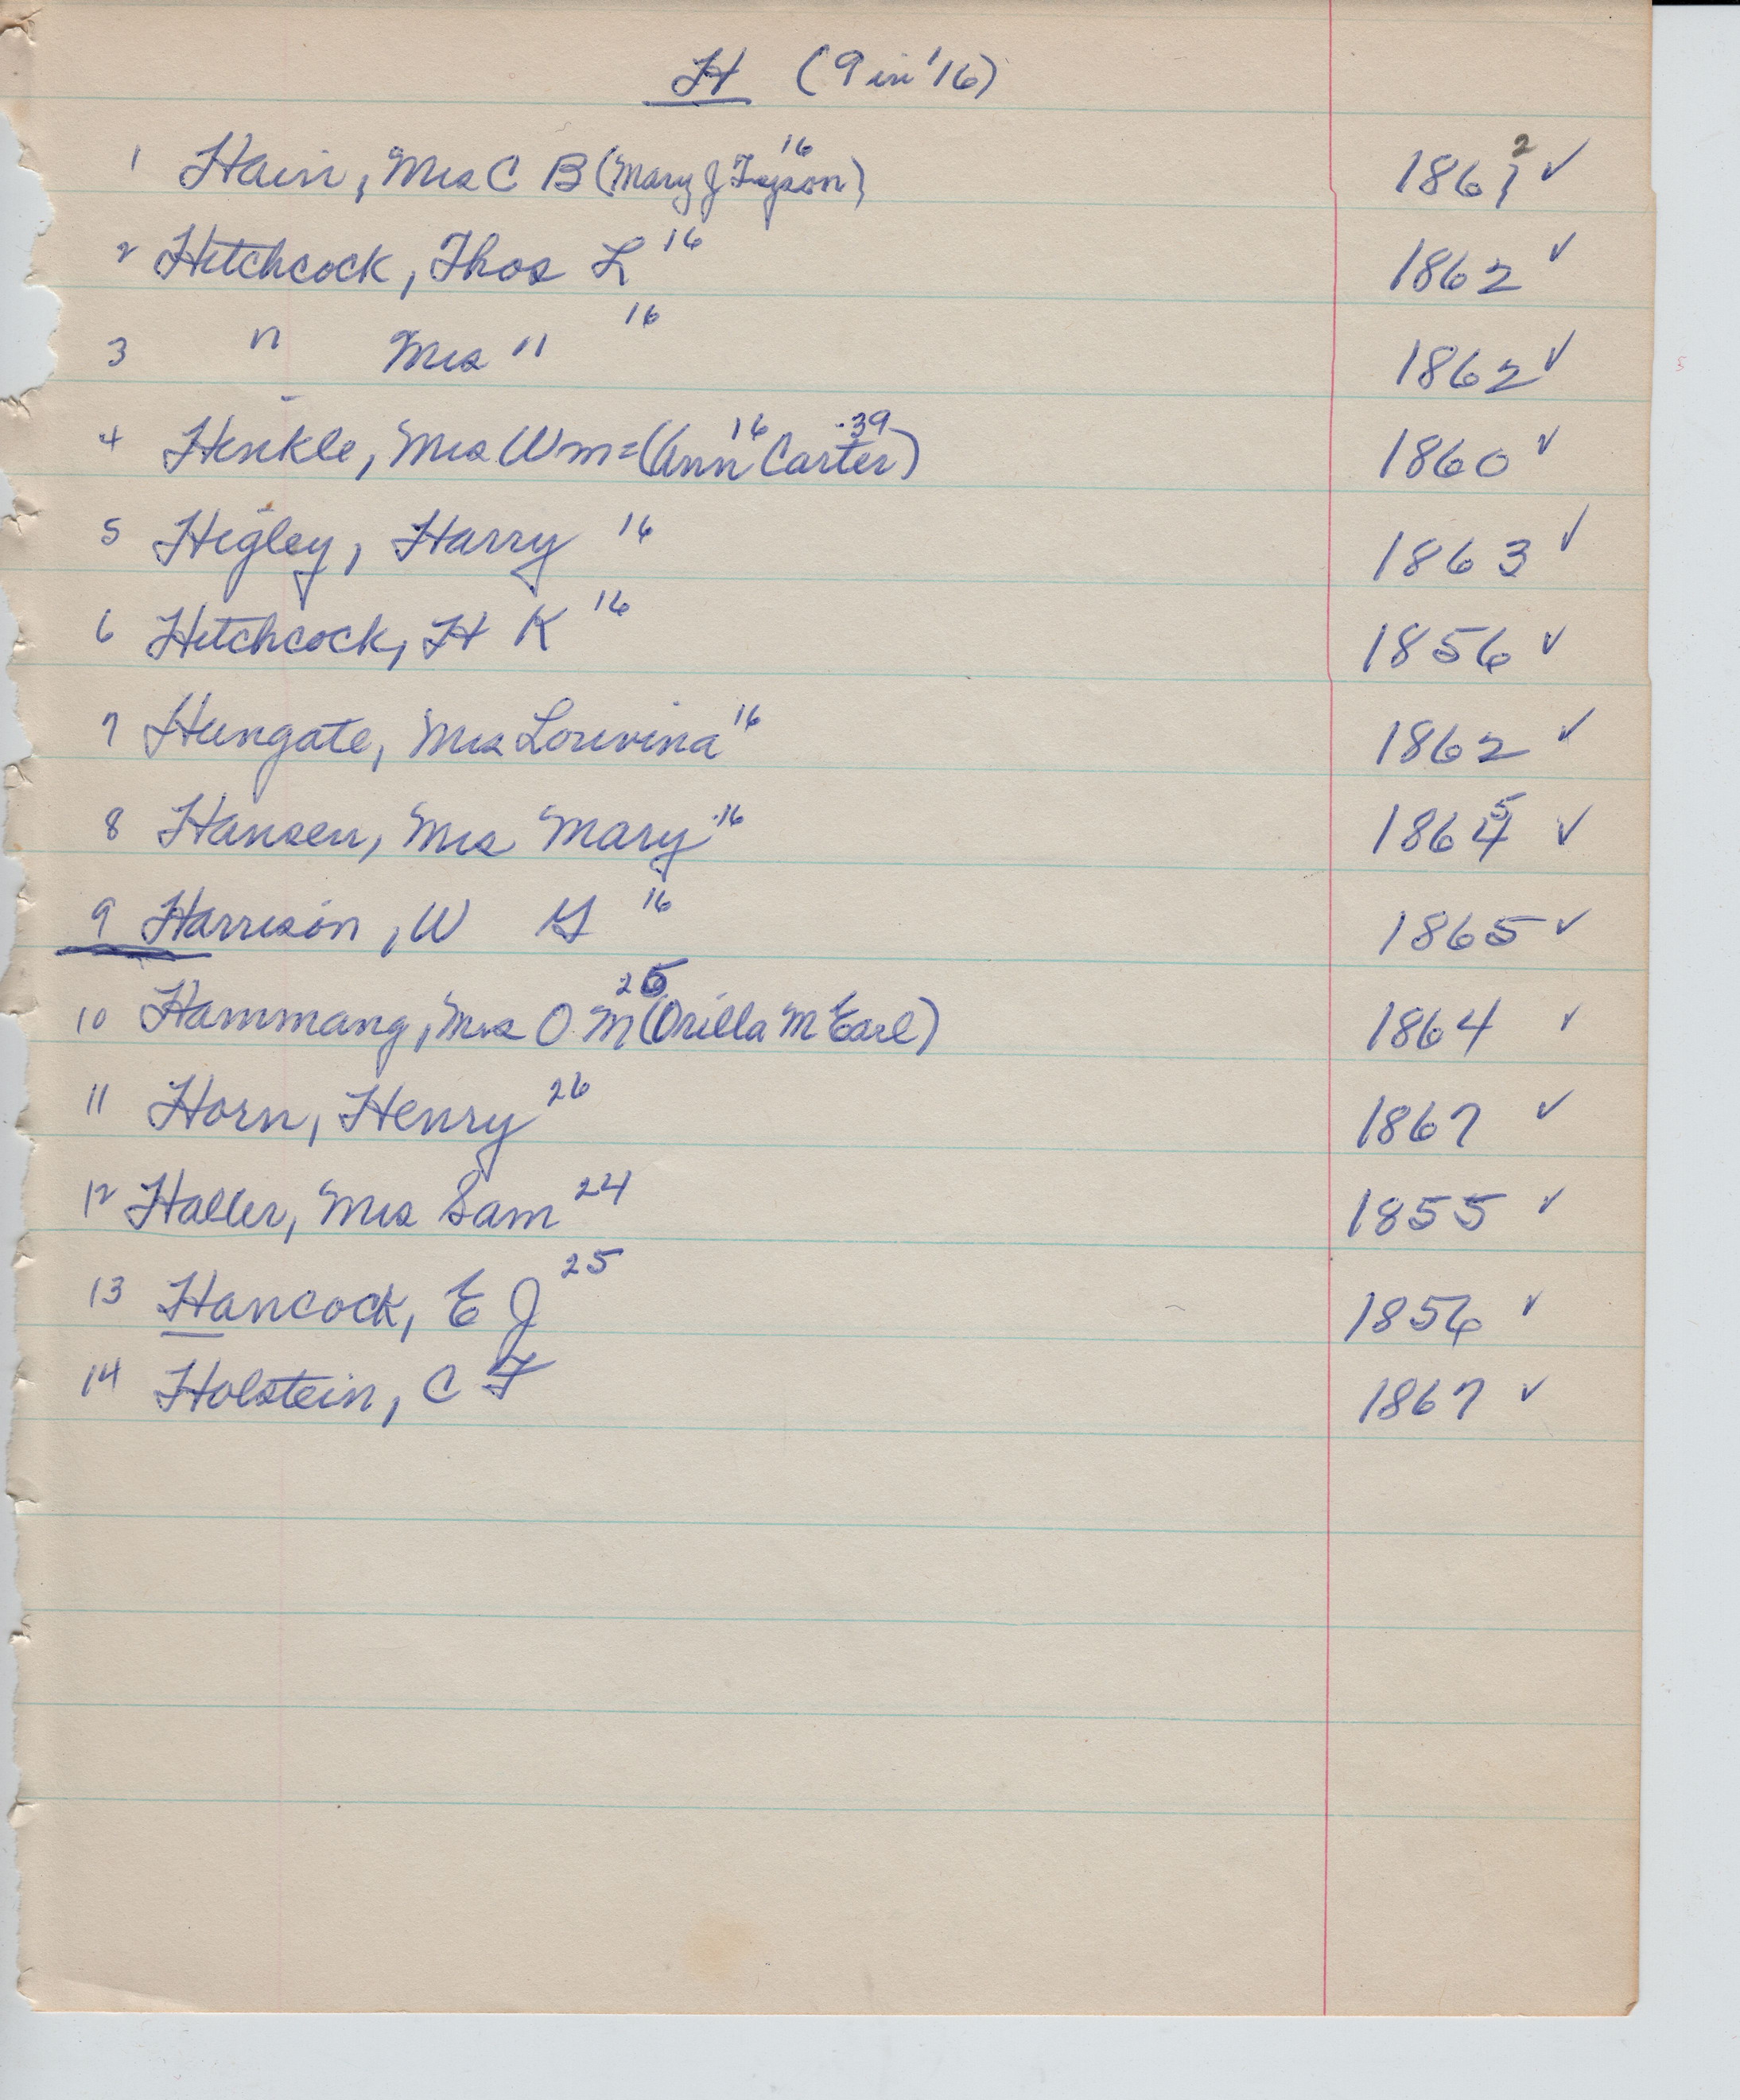 H (9 in '16)
1 Hain, Mrs C B (Mary J Tyson) 16 1861 2 ✓
2 Hitchcock, Thos L 16 1862 ✓
3 " Mrs " 16 1862 ✓
4 Henkle, Mrs Wm = (Ann Carter) 16 39 1860 ✓
5 Higley, Harry 16 1863 ✓
6 Hitchcock, H K 16 1856 ✓
7 Hungate, Mrs Louvina 16 1862 ✓
8 Hansen, Mrs Mary 16 1864 5 ✓
9 Harrison, W G 16 1865 ✓
10 Hammang, Mrs O. M (Orilla M Earl) 1864 ✓
11 Horn, Henry 26 1867 ✓
12 Haller, Mrs Sam 24 1855 ✓
13 Hancock, E J 25 1856 ✓
14 Holstein, C F 1867 ✓